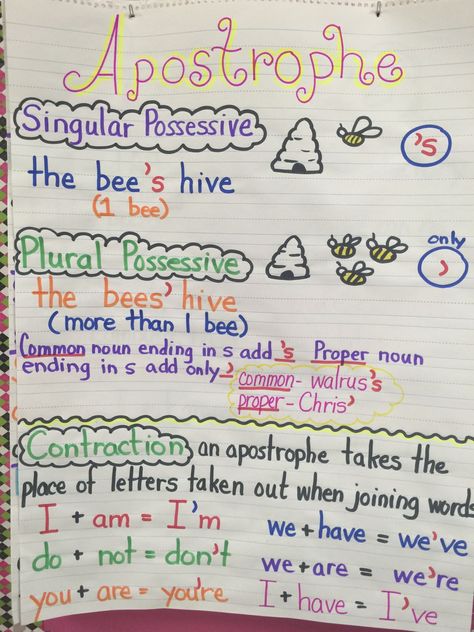 Apostrophe
Singular Possessive
's
the bee's hive
(1 bee)
Plural Possessive
only
'
the bees' hive
(more than 1 bee)
Common noun ending in s add 's Proper noun
ending in s add only '
common- walrus's
proper- Chris'
Contraction an apostrophe takes the
place of letters taken out when joining words
I + am = I'm
we + have = we've
do + not = don't
we + are = we're
you + are = you're
I + have = I've